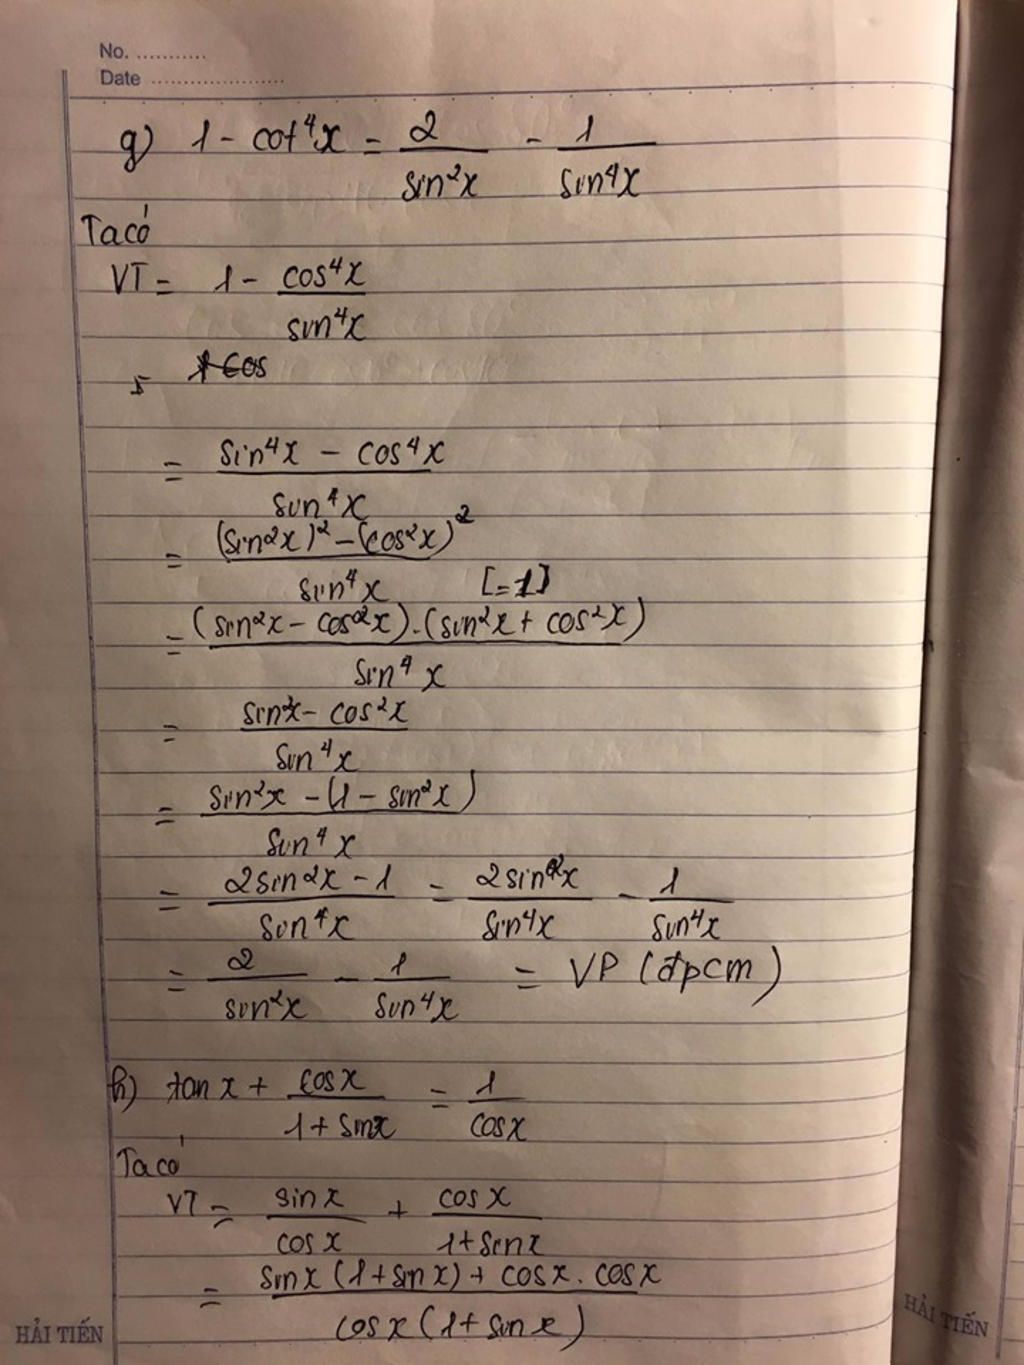 No. ...........
Date .....................
g) 1 - cot⁴x = 2/sin²x - 1/sin⁴x
Ta có
VT = 1 - cos⁴x/sin⁴x
= 1 cos
= (sin⁴x - cos⁴x)/sin⁴x
= ((sin²x)² - (cos²x)²)/sin⁴x
[=1]
= ((sin²x - cos²x).(sin²x + cos²x))/sin⁴x
= (sin²x - cos²x)/sin⁴x
= (sin²x - (1 - sin²x))/sin⁴x
= (2sin²x - 1)/sin⁴x = 2sin²x/sin⁴x - 1/sin⁴x
= 2/sin²x - 1/sin⁴x = VP (đpcm)
h) tan x + cosx/(1 + sinx) = 1/cosx
Ta có
VT = sinx/cosx + cosx/(1+sinx)
= (sinx(1+sinx) + cosx.cosx)/(cosx(1+sinx))
HẢI TIẾN
HẢI TIẾN